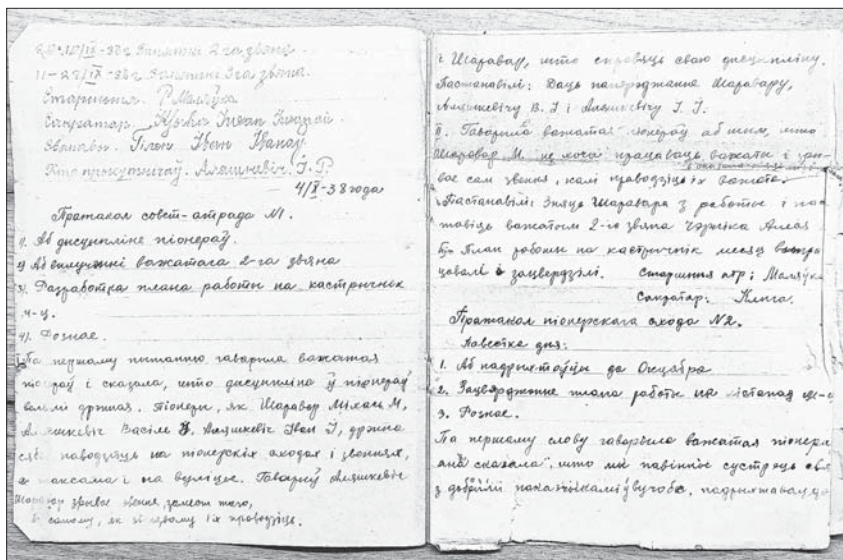 11-27/IX-38г Заняткі 3га звяна.
Старшыня Р. Маляўка
Сакратар. Іван
Звянавы. Гілон Іван Іванаў
Аляшкевіч. І. Р.
4/X-38 года
Пратакол совет-атрада №1.
1) Аб дысцыпліне піонераў.
2) Аб вылучэнні важатага 2-га звяна
3) Разработка плана работы на кастрычнік
м-ц.
4). Рознае.
Па першаму пытанню гаварыла важатая
і сказала, што дысцыпліна ў піонераў
вельмі дрэнная. Піонеры, як Шаравар Міхась М,
Аляшкевіч Васіль Аляшкевіч Іван І, дрэнна
сябе паводзяць на піонерскіх сходах і звонцах,
а таксама і на вуліцы. Гаварыў Аляшкевіч
Шаравар зрывае звення, замест таго,
самому, як звенавому іх праводзіць.
і Шаравар, што справяць сваю дысцыпліну.
Пастанавілі: Даць папярэджанне Шаравару,
Аляшкевічу В. І і Аляшкевічу І. І.
Гаварыла важатая піонераў аб тым, што
Шаравар М. не хоча працаваць важаты і зры-
вае сам звення, калі праводзіць іх важата.
Пастанавілі: Зняць Шаравара з работы і па-
ставіць важатым 2-го звяна
План работы на кастрычнік месяц
і зацвердзілі. Старшыня атр: Маляўка
Сакратар: Кніга.
Пратакол піонерскага схода №2.
Павестка дня:
1. Аб падрыхтоўцы да Окцабра
2. Зацверджэнне плана работы на лістапад м-ц
3. Рознае.
Па першаму слову гаварыла важатая піонера
яна сказала, што мы павінны сустрэць
з добрымі паказчыкамі ў вучобе,